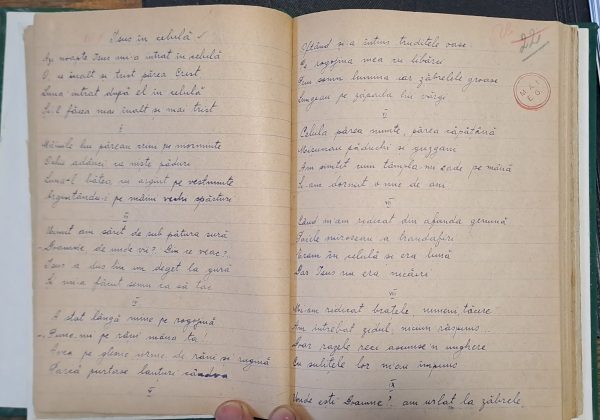 Isus în celulă
Az noapte Isus mi-a intrat în celulă
O, ce înalt si trist părea Crist
Luna intrat după el în celulă
Si-l făcea mai înalt si mai trist
I
Mâinile lui păreau crini pe morminte
Ochii adânci ca niste păduri
Luna-l bătea cu argint pe vestminte
Argintându-i pe mâini vechi spărturi
II
Uimit am sărit de sub pătura sură
- Doamne, de unde vii? Din ce veac?
Isus a dus lin un deget la gură
Si mi-a făcut semn ca să tac
III
A stat lângă mine pe rogojină
- Pune-mi pe răni mâna ta!
Avea pe glesne urme de răni si rugină
Parcă purtase lanturi cândva
IV
Oftând si-a întins truditele oase
Pe rogojina mea cu libărci
Prin somn lumina iar zăbrelele groase
Lungeau pe zăpada lui vărgi
V
Celula părea munte, părea căpătână
Misunau păduchi si guzgani
Am simtit cum tâmpla-mi cade pe mână
Si am dormit o mie de ani
VI
Când m-am ridicat din afunda genună
Paiele miroseau a trandafiri
Eram în celulă si era lună
Dar Isus nu era nicăiri
VII
Mi-am ridicat bratele, nimeni, tăcere
Am întrebat zidul, niciun răspuns
Doar razele reci ascunse-n unghere
Cu sulitele lor m-au împuns
VIII
Unde esti Doamne?, am urlat la zăbrele